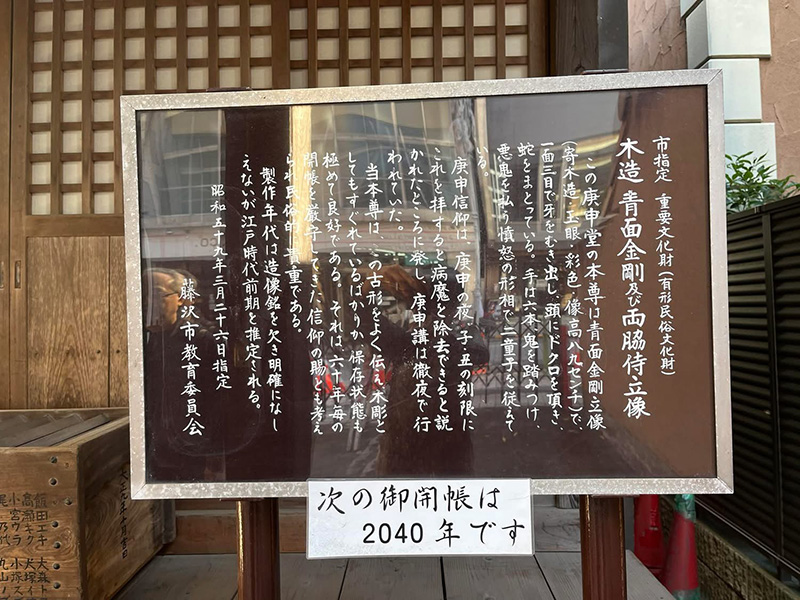 市指定 重要文化財(有形民俗文化財)
木造 青面金剛及び両脇侍立像
この庚申堂の本尊は青面金剛立像
(寄木造・玉眼・彩色、像高八九センチ)で、
一面三目で牙をむき出し、頭にドクロを頂き、
蛇をまとっている。手は六本、鬼を踏みつけ、
悪鬼を払う憤怒の形相で二童子を従えて
いる。
庚申信仰は、庚申の夜、子・丑の刻限に
これを拝すると病魔を除去できると説
かれたところに発し、庚申講は徹夜で行
われていた。
当本尊は、この古形をよく伝え、木彫と
してもすぐれているばかりか、保存状態も
極めて良好である。それは六十年毎の
開帳を厳守してきた信仰の賜とも考え
られ民俗的に貴重である。
製作年代は造像銘を欠き明確になし
えないが江戸時代前期と推定される。
昭和五十九年三月二十六日指定
藤沢市教育委員会
次の御開帳は
2040年です
飯田エキ
高瀬キク
小宮ウラ
尾乃代
大森ト
犬塚イ
小孫ス
丸山ノ